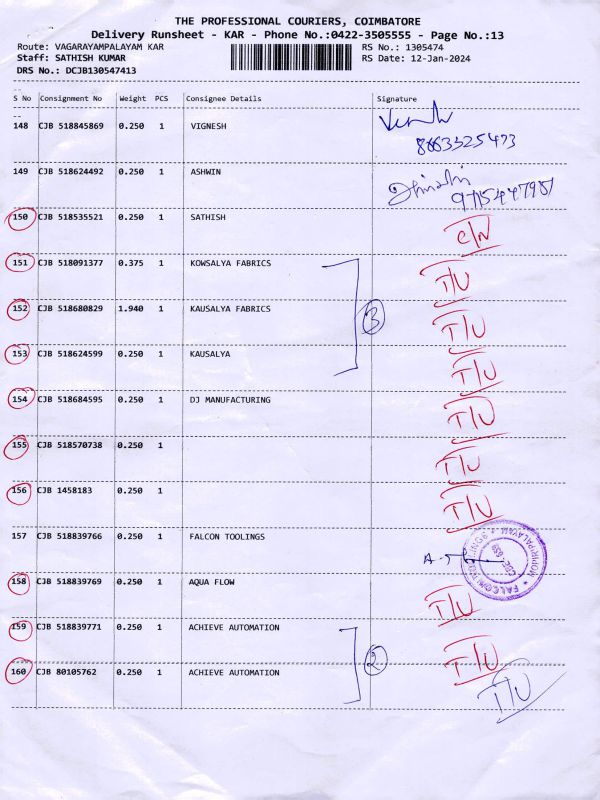 THE PROFESSIONAL COURIERS, COIMBATORE
Delivery Runsheet - KAR - Phone No.:0422-3505555 - Page No.:13
Route: VAGARAYAMPALAYAM KAR RS No.: 1305474
Staff: SATHISH KUMAR RS Date: 12-Jan-2024
DRS No.: DCJB130547413
S No Consignment No Weight PCS Consignee Details Signature
--
148 CJB 518845869 0.250 1 VIGNESH
8663525473
149 CJB 518624492 0.250 1 ASHWIN
150 CJB 518535521 0.250 1 SATHISH C/N
151 CJB 518091377 0.375 1 KOWSALYA FABRICS I/U
152 CJB 518680829 1.940 1 KAUSALYA FABRICS 3 I/U
153 CJB 518624599 0.250 1 KAUSALYA I/U
154 CJB 518684595 0.250 1 DJ MANUFACTURING I/U
155 CJB 518570738 0.250 1 I/U
156 CJB 1458183 0.250 1 I/U
157 CJB 518839766 0.250 1 FALCON TOOLINGS
158 CJB 518839769 0.250 1 AQUA FLOW I/U
159 CJB 518839771 0.250 1 ACHIEVE AUTOMATION 2 I/U
160 CJB 80105762 0.250 1 ACHIEVE AUTOMATION I/U